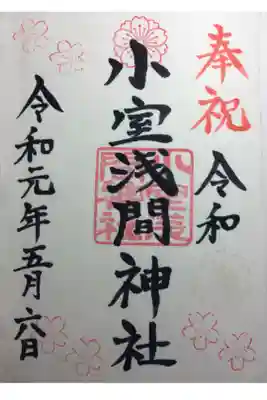 奉祝
令和
小室浅間神社
令和元年五月六日